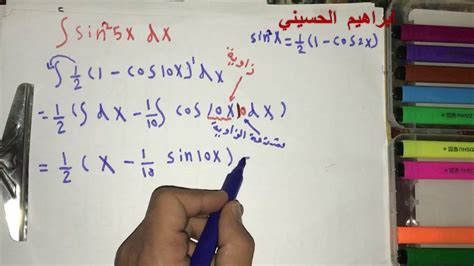 ابراهيم الحسيني
∫ sin²5x dx
sin²x = 1/2 (1 - cos2x)
∫ 1/2 (1 - cos10x)¹ dx
زاوية
= 1/2 (∫ dx - 1/10 ∫ cos 10x 10 dx)
مشتقة الزاوية
= 1/2 (x - 1/10 sin10x)